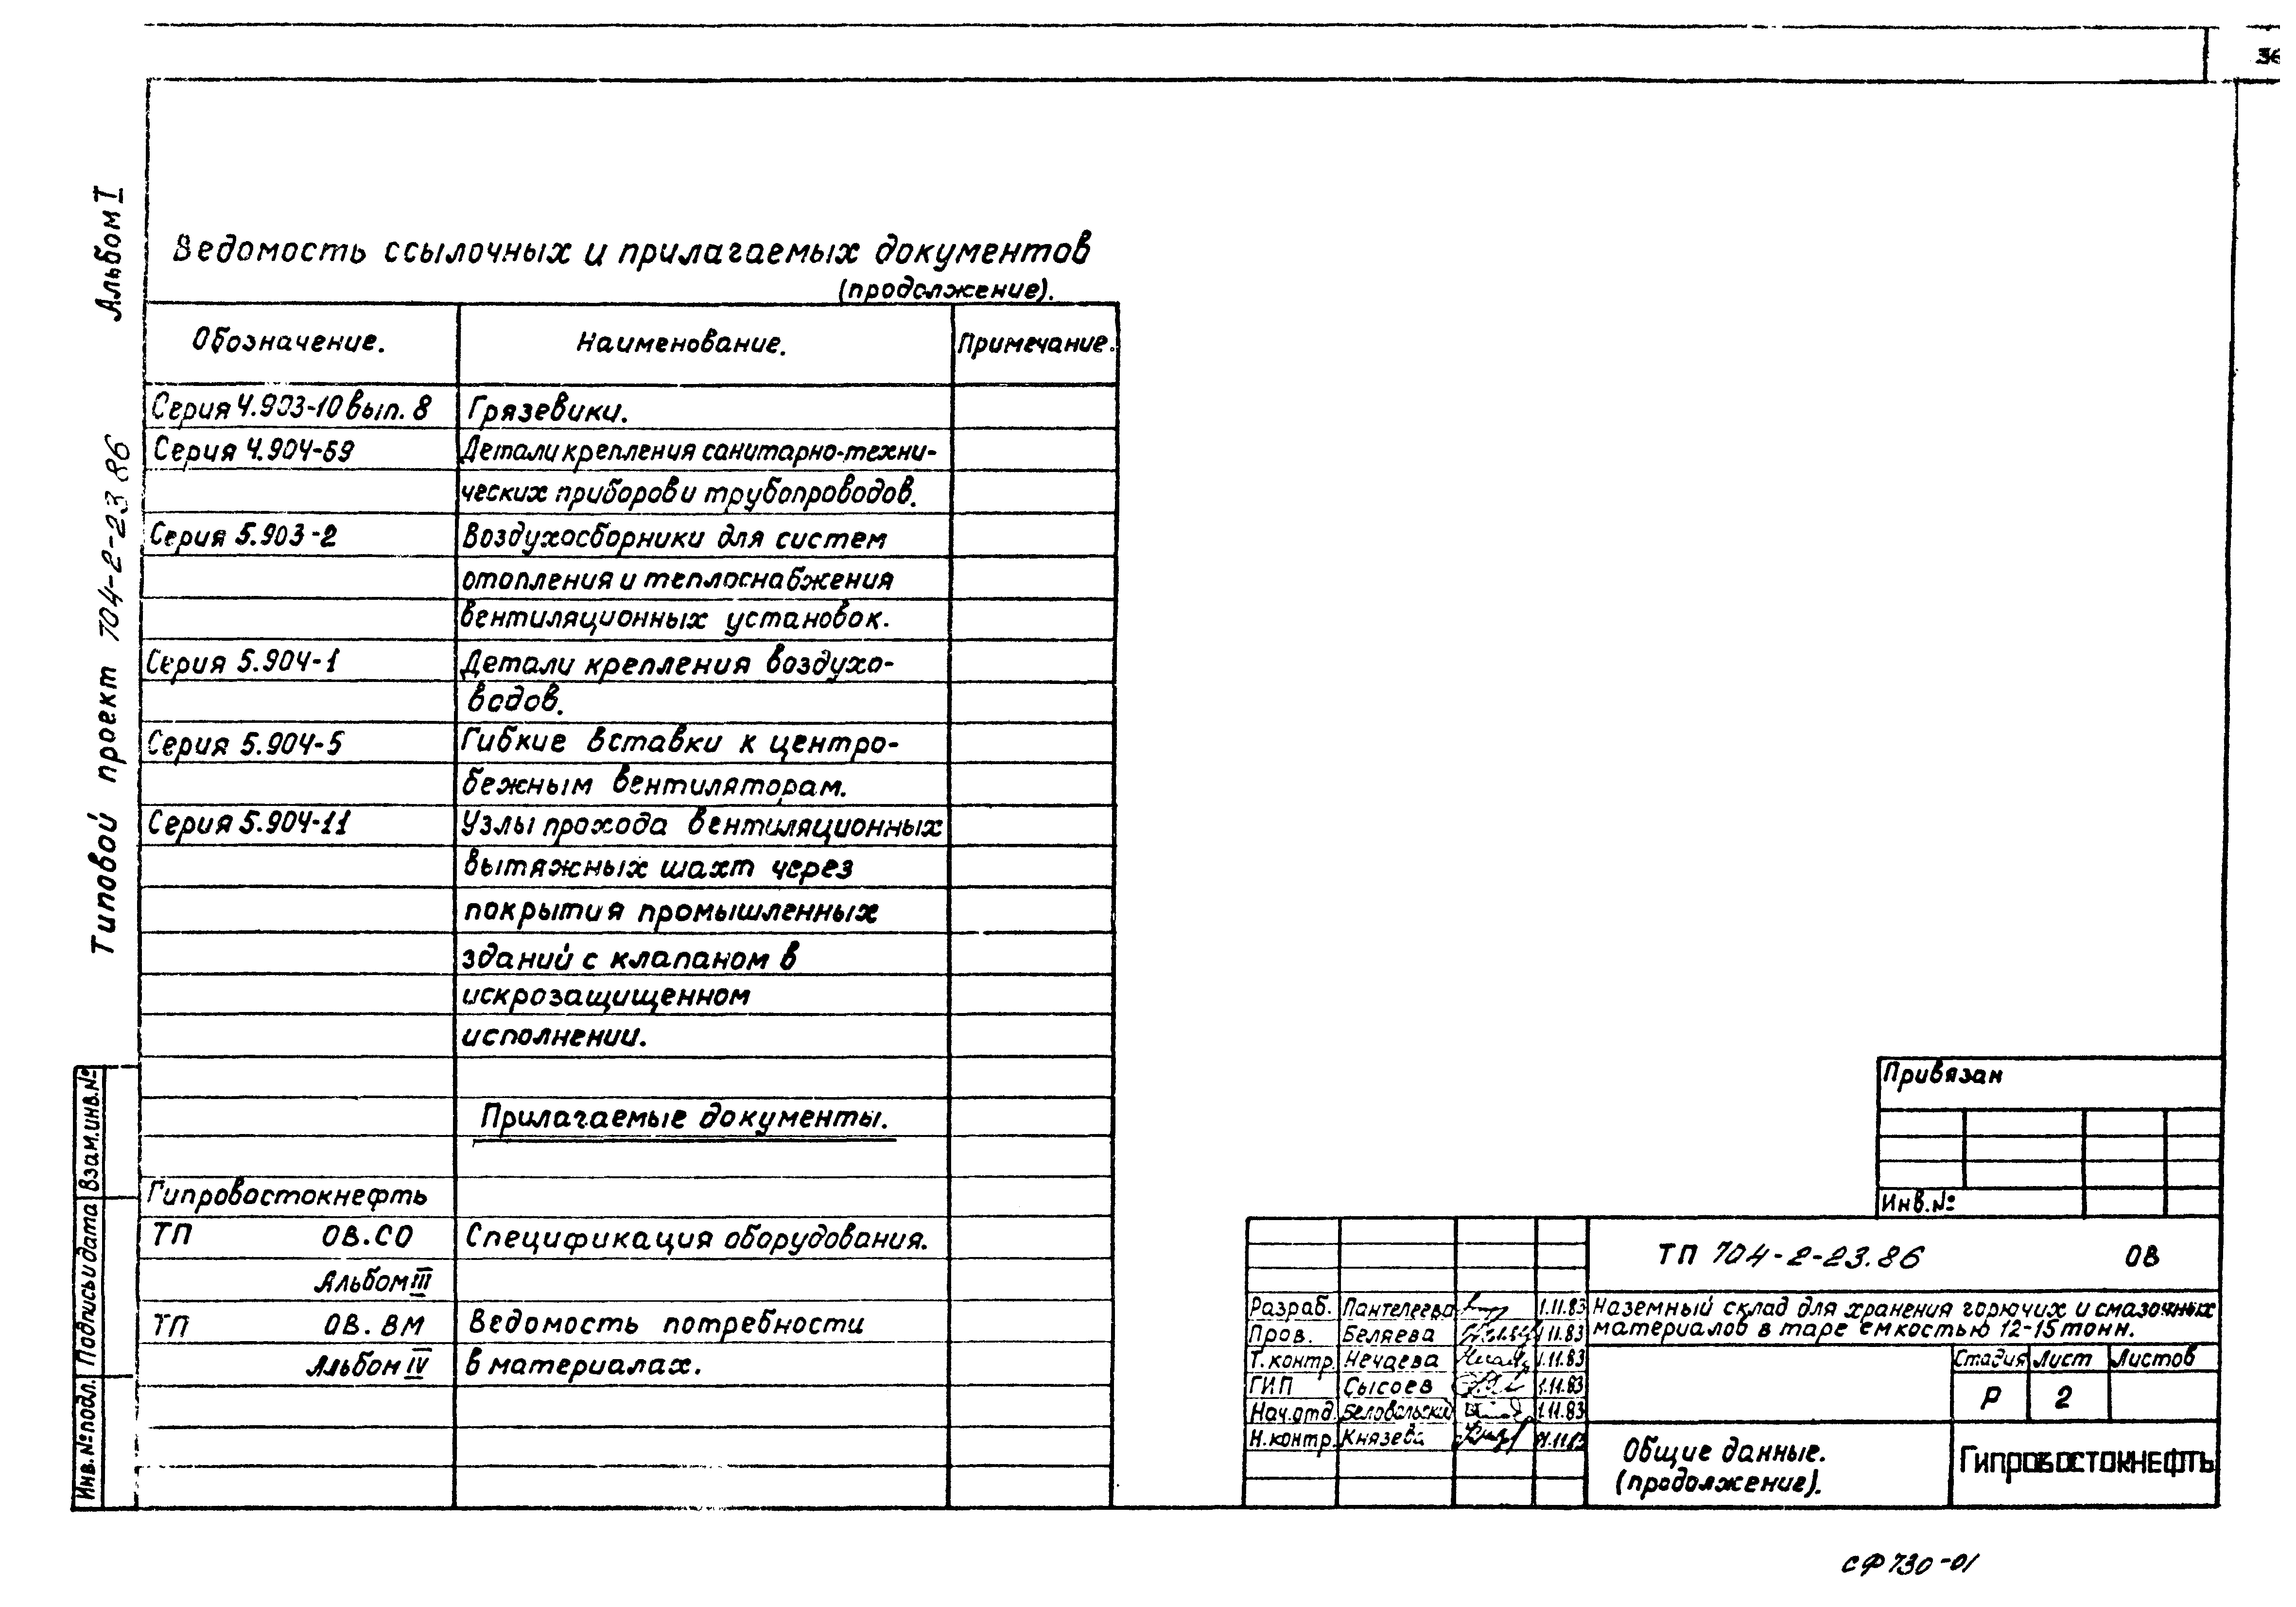 36
Альбом I
Типовой проект 704-2-23.86
Ведомость ссылочных и прилагаемых документов
(продолжение).
Обозначение. Наименование. Примечание.
Серия 4.903-10 вып. 8 Грязевики.
Серия 4.904-69 Детали крепления санитарно-техни-
ческих приборов и трубопроводов.
Серия 5.903-2 Воздухосборники для систем
отопления и теплоснабжения
вентиляционных установок.
Серия 5.904-1 Детали крепления воздухо-
водов.
Серия 5.904-5 Гибкие вставки к центро-
бежным вентиляторам.
Серия 5.904-11 Узлы прохода вентиляционных
вытяжных шахт через
покрытия промышленных
зданий с клапаном в
искрозащищенном
исполнении.
Прилагаемые документы.
Гипровостокнефть
ТП ОВ.СО Спецификация оборудования.
Альбом III
ТП ОВ.ВМ Ведомость потребности
Альбом IV в материалах.
Взам.инв.№
Подпись и дата
Инв.№ подл.
Привязан
Инв.№
ТП 704-2-23.86 ОВ
Разраб. Пантелеева 1.11.83
Пров. Беляева 1.11.83
Т.контр. Нечаева 1.11.83
ГИП Сысоев 1.11.83
Нач.отд. 1.11.83
Н.контр. Князева 1.11.83
Наземный склад для хранения горючих и смазочных
материалов в таре емкостью 12-15 тонн.
Стадия Лист Листов
Р 2
Общие данные.
(продолжение).
Гипровостокнефть
СФ 730-01